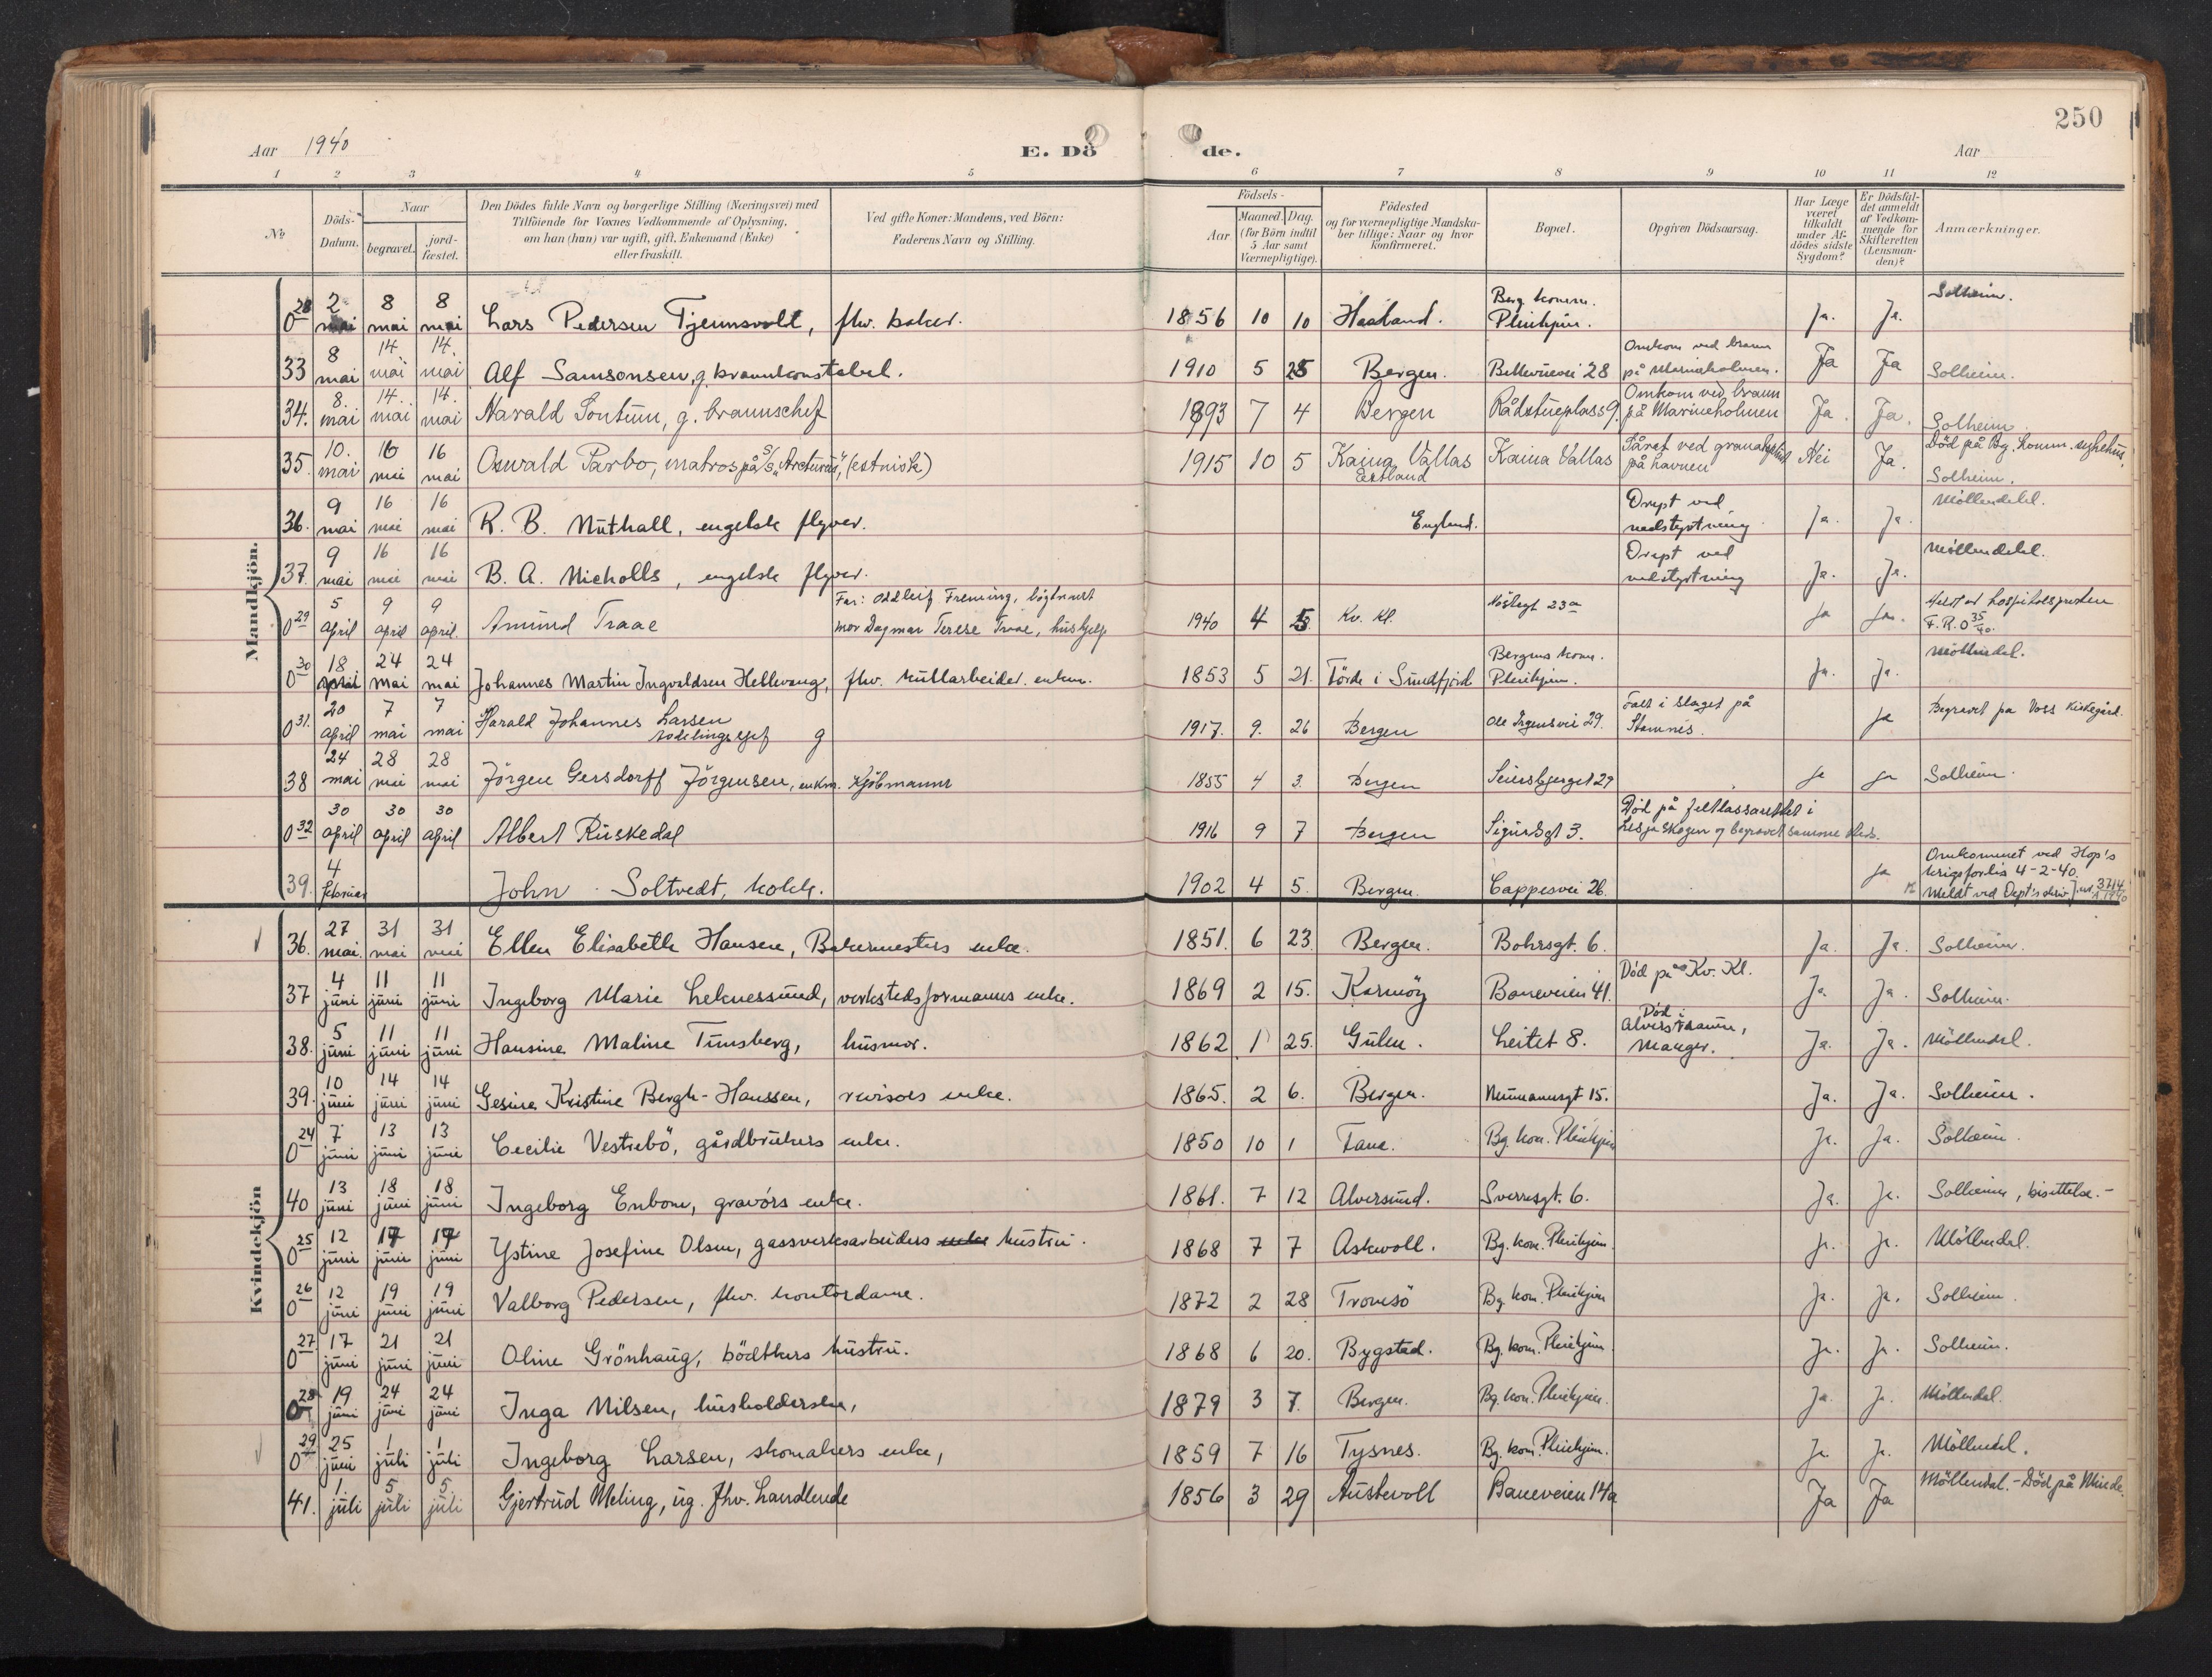 250
Aar 1940
E. Dö de.
Aar
1 2 3 4 5 6 7 8 9 10 11 12
No
Döds-Datum.
Naar
begravet.
jord-fæstet.
Den Dödes fulde Navn og borgerlige Stilling (Næringsvei) med
Tilföiende for Voxnes Vedkommende af Oplysning,
om han (hun) var ugift, gift, Enkemand (Enke)
eller fraskilt.
Ved gifte Koner: Mandens, ved Börn:
Faderens Navn og Stilling.
Födsels-
Aar.
Maaned. Dag.
(for Börn indtil
5 Aar samt
Værnepligtige).
Födested
og for værnepligtige Mandska-
ber tillige: Naar og hvor
konfirmeret.
Bopæl.
Opgiven Dödsaarsag.
Har Læge
været
tilkaldt
under Af-
dödes sidste
Sygdom?
Er Dödsfal-
det anmeldt
af Vedkom-
mende for
Skifteretten
(Lensman-
den)?
Anmærkninger.
Mandkjön.
0 28 2 mai 8 mai 8 mai Lars Pedersen Tjennsvold, fhv. baker. 1856 10 10 Haaland. Berg. komm. Pleiehjem. Ja. Ja. Solheim.
33 8 mai 14 mai 14. mai Alf Samsonsen, g. brannkonstabel. 1910 5 25 Bergen. Bellevuevei 28 Omkom ved brann på Marineholmen. Ja Ja Solheim.
34. 8. mai 14. mai 14. mai Harald Sontum, g. brannschef 1893 7 4 Bergen Rådstueplass 9. Omkom ved brann på Marineholmen Ja. Ja. Solheim.
35. 10. mai 16 mai 16 mai Oswald Parbo, matros på S/S "Arcturus", (estnisk) 1915 10 5 Kaina Vallas Estland Kaina Vallas Såret ved på havnen Nei Ja. Död på Bg. komm. sykehus. Solheim.
36. 9 mai 16 mai 16 mai R. B. Nuthall, engelsk flyver. England. Drept ved nedstyrtning Ja. Ja. Möllendal.
37. 9 mai 16 mai 16 mai B. A. Nicholls, engelsk flyver. Drept ved nedstyrtning Ja. Ja. Möllendal.
0 29 5 april 9 april 9 april. Amund Traae Far: Oddleif Fremning, mor Dagmar Terese Traae, hushjelp 1940 4 5. Kv. Kl. Nöstegt 23a Ja Ja. Meldt av hospitalspresten F.R.O 35/40.
0 30 18 mai 24 mai 24 mai Johannes Martin Ingvaldsen Hellevang, fhv. kullarbeider. enkem. 1853 5 21. Förde i Sundfjord Bergens kom. Pleiehjem. Ja. Ja. Möllendal.
0 31. 20 April 7 mai 7 mai Harald Johannes Larsen g 1917. 9. 26 Bergen Ole Irgensvei 29. Falt i slaget på Stamnes. Ja Begravet på Voss Kirkegård.
38 24 mai 28 mai 28 mai Jörgen Gersdorff Jörgensen, enkm. Kjöbmann 1855 4 3. Bergen Seiersbjerget 29 Ja Ja Solheim.
0 32 30 april 30 april 30 april Albert Ruskedal 1916 9 7 Bergen Sigurdsgt 3. Död på feltlassarettet i Lesjaskogen og begravet samme sted.
39. 4 februar John Soltvedt, kokk. 1902 4 5. Bergen. Cappesvei 26. Ja Omkommet ved Hop's krigsforlis 4-2-40. Meldt ved Dept's skriv. J.nr. 3714 A 1940
Kvindekjön
36. 27 mai. 31 mai 31 mai Ellen Elisabeth Hansen, Bakermesters enke. 1851. 6 23. Bergen. Bohrsgt. 6. Ja. Ja. Solheim.
37 4 juni 11 juni 11 juni Ingeborg Marie Leknessund, verkstedsformanns enke. 1869 2 15. Karmöy Baneveien 41. Död på Kv. Kl. Ja Ja. Solheim.
38. 5 juni 11 juni 11 juni Hansine Maline Tunsberg, husmor. 1862. 1 25. Gulen. Leitet 8. Död i Alverstraum, Manger. Ja. Ja. Möllendal.
39. 10 juni 14 juni 14 juni Gesine Kristine Bergh-Hanssen, revisors enke. 1865. 2 6. Bergen. Neumannsgt 15. Ja. Ja. Solheim.
0 24 7 juni 13 juni 13 juni Cecilie Vestrebö, gårdbrukers enke. 1850 10 1 Fana. Bg. kom. Pleiehjem Ja. Ja. Solheim.
40 13 juni 18 juni 18 juni Ingeborg Enbom, gravörs enke. 1861. 7 12 Alversund. Sverresgt. 6. Ja. Ja. Solheim, bisettelse.-
0 25 12 juni 17 juni 17 juni Ystine Josefine Olsen, gassverksarbeiders enke hustru. 1868 7 7 Askvoll. Bg. kom. Pleiehjem. Ja. Ja. Möllendal.
0 26 12 juni 19 juni 19 juni Valborg Pedersen, fhv. kontordame. 1872 2 28 Tromsö Bg. kom. Pleiehjem Ja. Ja. Solheim.
0 27. 17 juni 21 juni 21 juni Oline Grönhaug, bödtkers hustru. 1868 6 20. Bygstad. Bg. kom. Pleiehjem. Ja. Ja. Solheim.
0 28 19 juni 24 juni 24 juni Inga Nilsen, husholderske, 1879 3 7. Bergen. Bg. kom. Pleiehjem. Ja. Ja. Möllendal.
0 29 25 juni 1 juli 1 juli Ingeborg Larsen, skomakers enke, 1859 7 16 Tysnes. Bg. kom. Pleiehjem. Ja. Ja. Möllendal.
41. 1. juli 5 juli 5. juli Gjertrud Meling, ug. fhv. handlende 1856 3 29 Austevoll Baneveien 14a Ja Ja Möllendal.- Död på Minde.